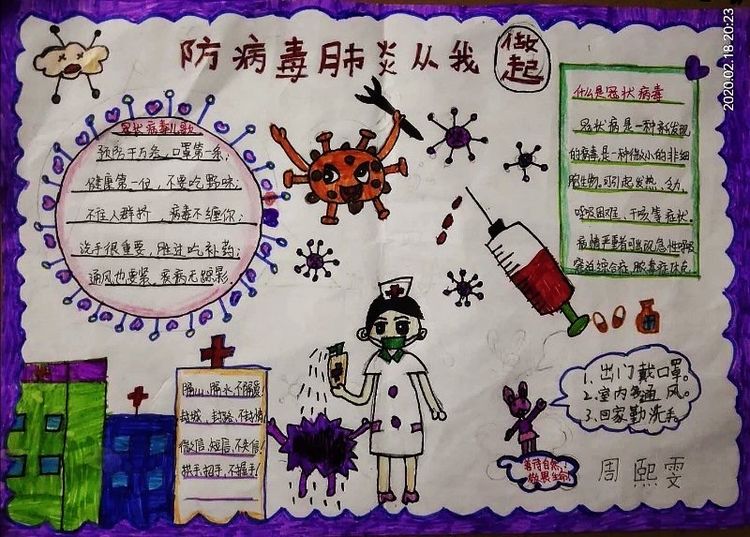 防病毒肺炎从我
做起
2020.02.18 20:23
冠状病毒儿歌
预防千万条，口罩第一条；
健康第一位，不要吃野味；
不往人群挤，病毒不缠你；
洗手很重要，胜过吃补药；
通风也要紧，疾病无踪影。
什么是冠状病毒
冠状病是一种新发现
的病毒是一种微小的非细
胞生物。可引起发热、乏力、
呼吸困难、干咳等症状。
病情严重者可出现急性呼吸
窘迫综合症、脓毒症休克
隔山、隔水不隔爱！
封城、封路、不封情！
微信、短信、不失信！
拱手、招手、不握手！
1、出门戴口罩。
2、室内多通风。
3、回家勤洗手。
善待自然，
敬畏生命！
周熙雯